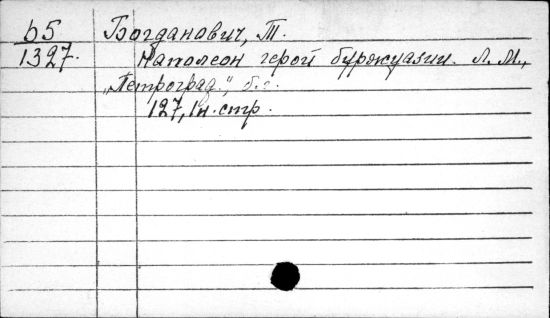 Б5 Богданович, Т.
1327. Наполеон герой буржуазии. Л. М.,
„Петроград.", б. г.
127, 1 н. стр.